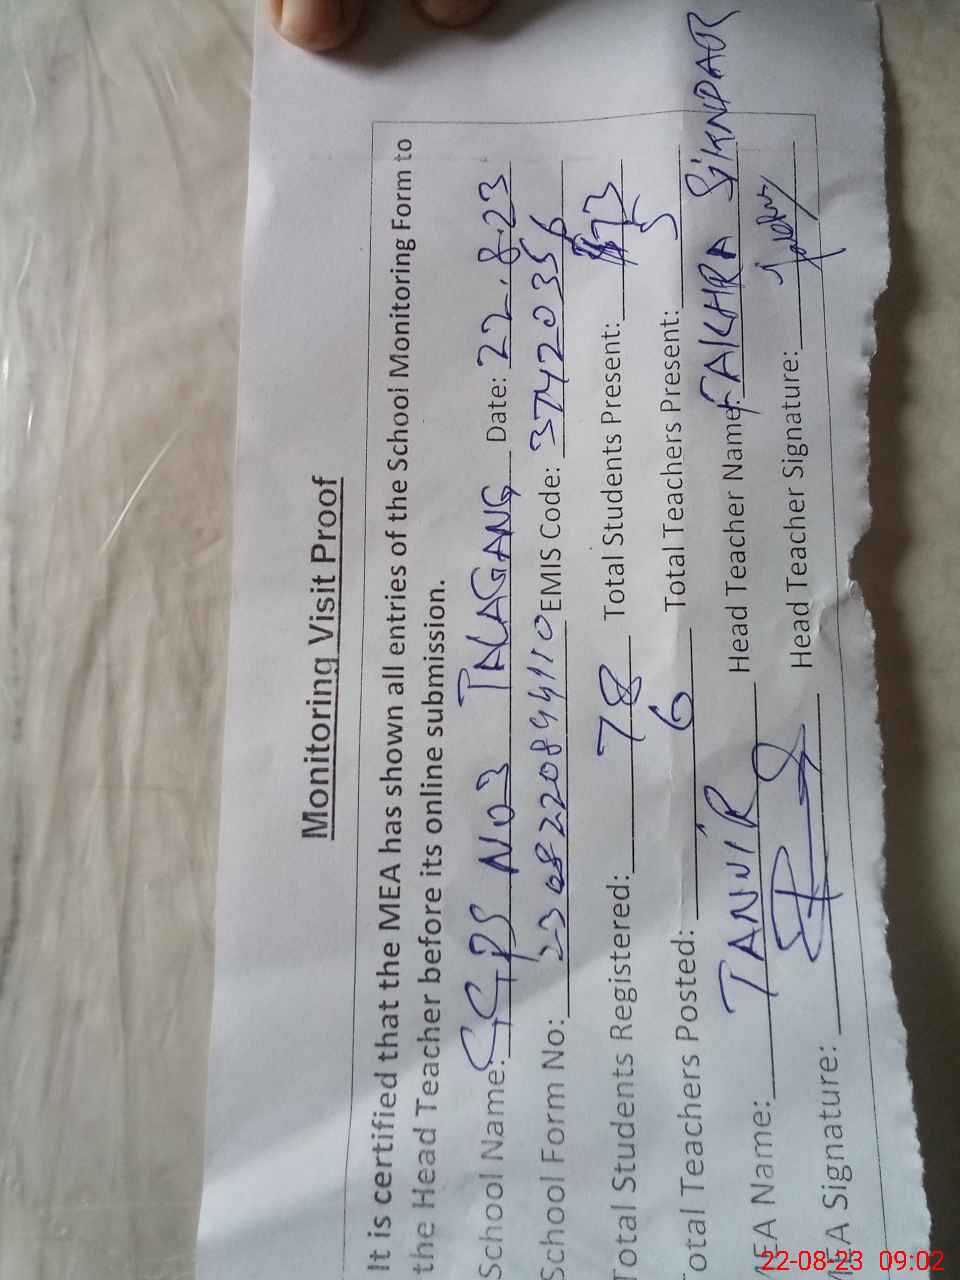 Monitoring Visit Proof
It is certified that the MEA has shown all entries of the School Monitoring Form to
the Head Teacher before its online submission.
School Name: GGPS NO3 TALAGANG Date: 22.8.23
School Form No: EMIS Code: 37420356
Total Students Registered: 78 Total Students Present: 73
Total Teachers Posted: 6 Total Teachers Present: 5
MEA Name: TANVIR Head Teacher Name: FAKHRA
MEA Signature: Head Teacher Signature:
22-08-23 09:02